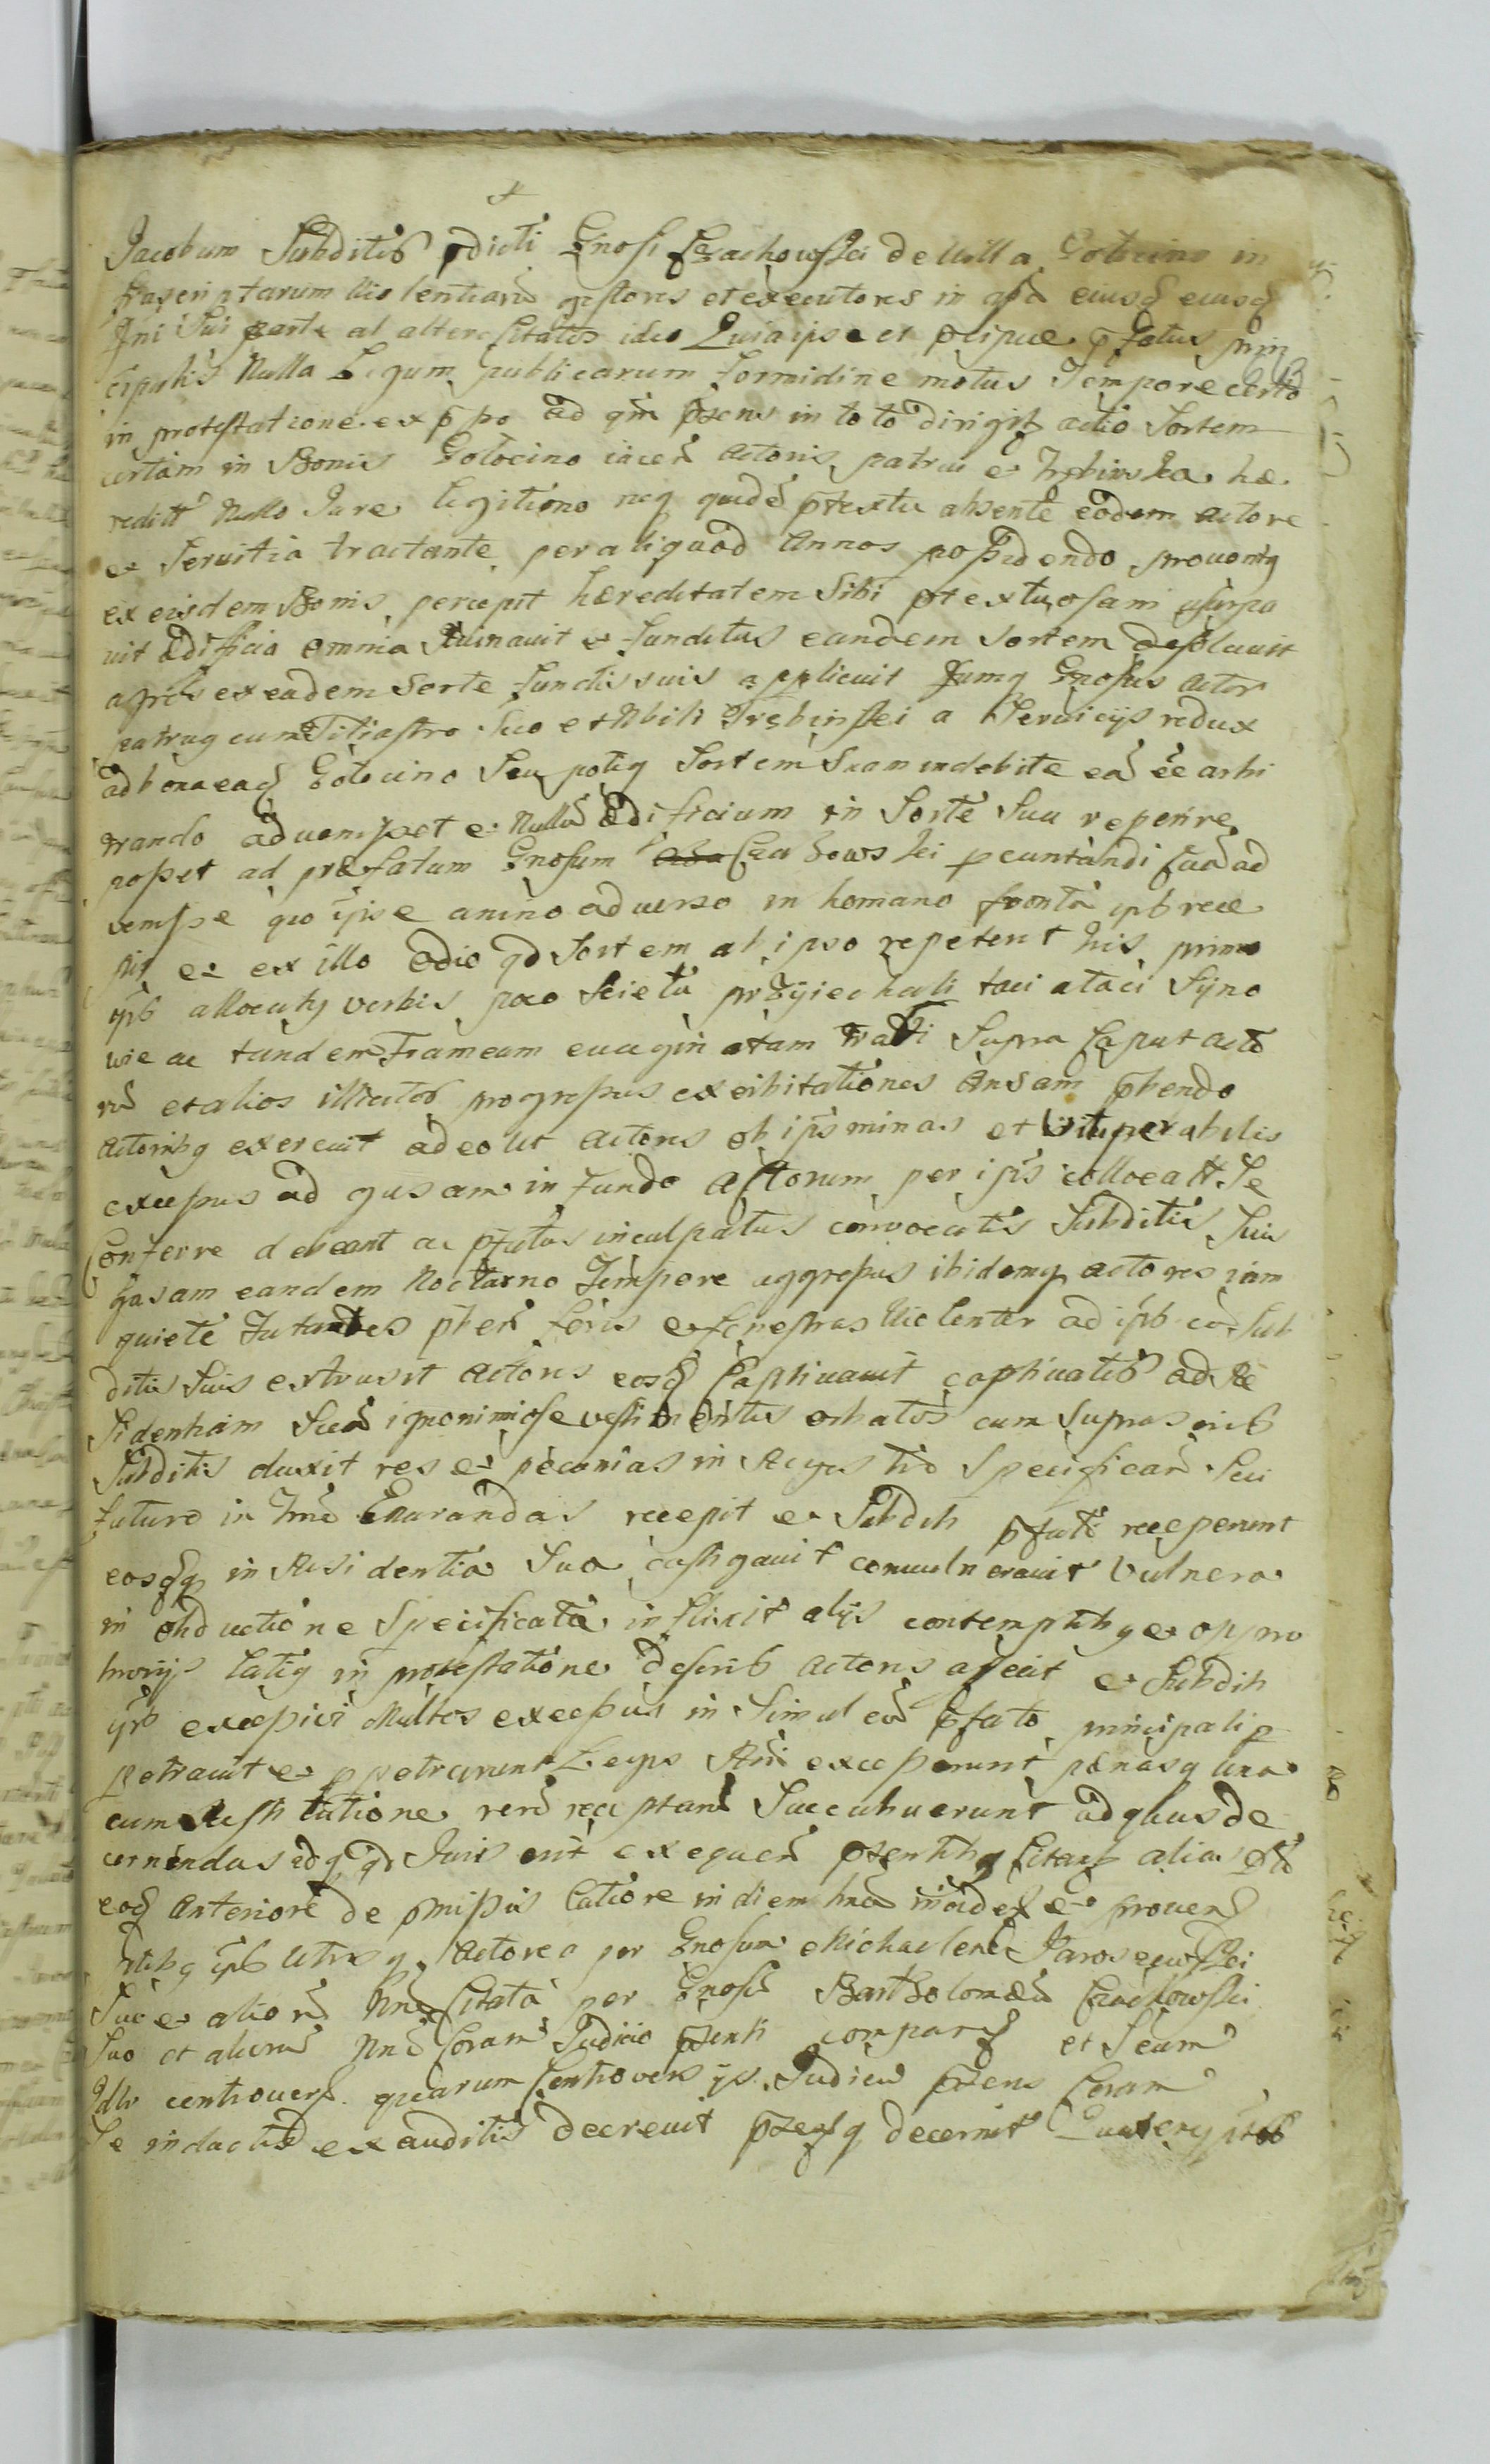 Jacobum Subditos pdicti Gnosi Czachowski de Villa Gotocino in
frascriptarum violentiarū gestores et executores in assā eiusq eiusq
Dni Sui parte ab altera Citatos ideo Quia ipse et pcipue pfatus prin
cipalis Nulla Legum publicarum formidine motus Tempore certo
in protestatione expsso ad qm pzens in toto dirigit actio Sortem
certam in Bonis Gotocino iacen actoris patrui et Trębinska hæ
redit Nullo Jure legitimo neq quidē ptextu absente eodem actore
et Servitia tractante per aliquod Annos possidendo prouentq
ex eisdem Bonis percepit hæreditatem Sibi ptextuosam usurpa
uit ædificia omnia Ruinauit et funditus eandem Sortem desolauit
agros ex eadem Sorte fundis suis applicuit Cumq Gnosus actor
patruq cum Filiastro Suo et Nbili Trębinski a Seruicijs redux
ad bona eaq Gotocino Seu potiq Sortem Suam indebite eā eē arbi
trando aduenisset et Nullū ædificium in Sorte Sua reperire
posset ad præfatum Gnosum Czachowski pcuntandi causā ad
venisse quo ipse animo aduerso in homano fronte ipos rece
pit et ex illo odio qd Sortem ab ipso repeterent his primo
ipos allocutq verbis poco Scie tu przyiechali taci a taci Syno
wie ac tandem Frameam euaginatam Supra Caput acto
rū et alios illicitos progressus exsibitationes Ansam pbendo
actoribq exercuit adeo ut actores ob ips minas et vituperabiles
excessus ad gasam in fundo actorum per ips collocatt Se
Conferre debeant ac pfatus inculpatus convocatis Subditis Suis
Gasam eandem Nocturno Tempore aggressus ibidemq actores iam
quiete fores et fenestras violenter ad ipos cū Sub
ditis Suis extraxit actores eosq Captivauit captivatos ad Re
sidentiam Suā ignominiose vestimentis orbatos cum Supras
Subditis duxit res et pecunias in Specifican Seu
future in Tmo Enarandas recepit et Subditi pfati receperunt
eosqq in Residentia Sua castigauit convulnerauit Vulnera
in obductione Specificata inflixit alijs contemptibq et oppro
brijs latiq in protestatione descrip actores afecit et Subditi
ips excessiui Multos excessus in Simul cū pfato principali p
petrauit et ppetrarunt exceperunt pœnasq una
cum Restitutione rerū receptarū Succubuerunt ad quas de
cernendas edqq qd Juris erit exequen pzentibq Citans alias
eoq Anteriore de pmissis Citatione in diem hnā incidet et proueni
rtibq ipos utrisq Actorea per Gnosum Michaelem Jaroszewski
Suo et aliorū Nne Citata per Gnosū Bartholomæū Czachowski
Suo et alioru Nne Coram Judicio pzenti comparen et Secum
Idtr controuers quarum Controversijs Judiciū pzens Coram
Se inductis exauditis decreuit pzensq decernit Quatenq